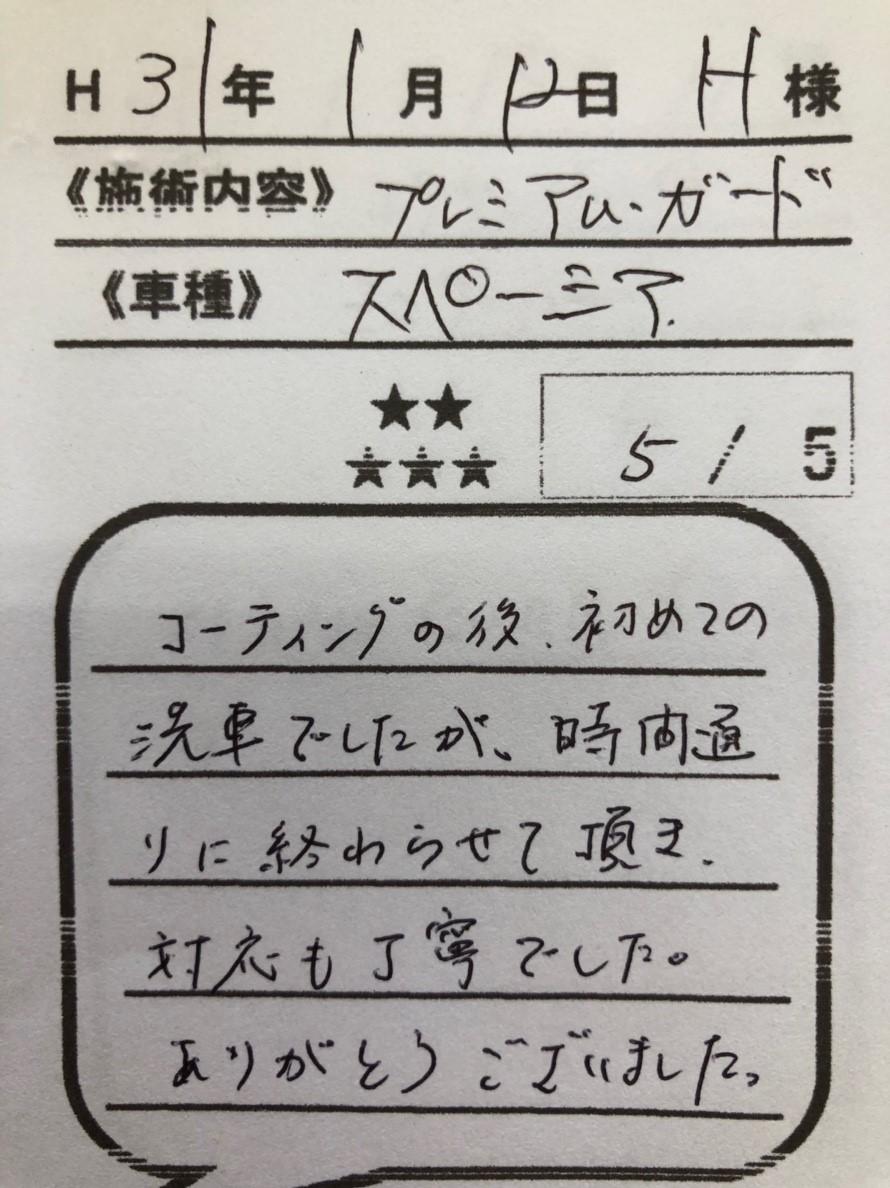 H31年 1月12日 H様
《施術内容》 プレミアム・ガード
《車種》 スペーシア
★★
★★★
5/5
コーティングの後、初めての
洗車でしたが、時間通
りに終わらせて頂き、
対応も丁寧でした。
ありがとうございました。